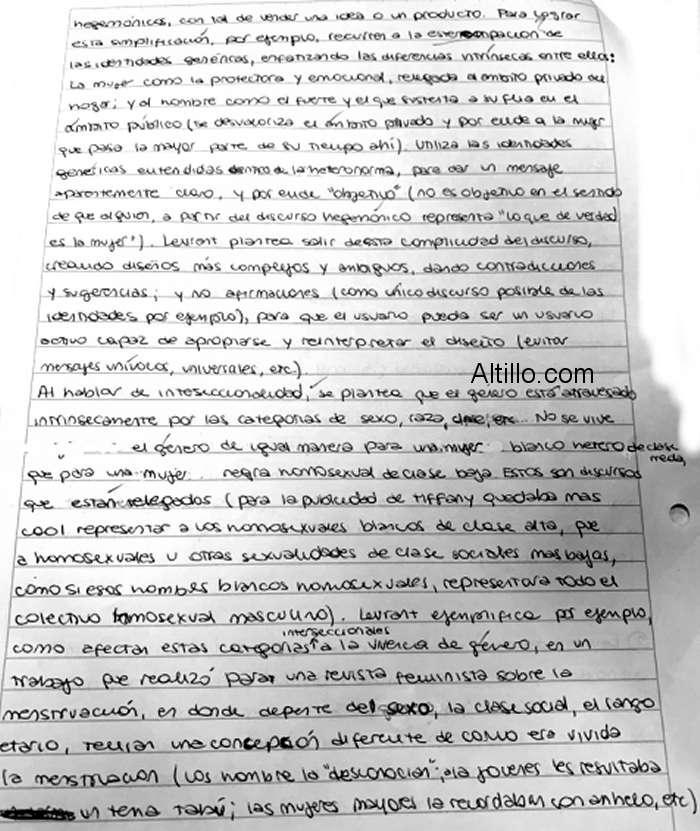 hegemónicos, con tal de vender una idea o un producto. Para lograr
esta simplificación, por ejemplo, recurren a la estereotipación de
las identidades genéricas, enfatizando las diferencias intrínsecas entre ellas:
La mujer como la protectora y emocional, relegada al ámbito privado del
hogar; y al hombre como el fuerte y el que sustenta a su flia en el
ámbito público (se desvaloriza el ámbito privado y por ende a la mujer
que pasa la mayor parte de su tiempo ahí). Utiliza las identidades
genéricas entendidas dentro de la heteronorma, para dar un mensaje
aparentemente claro, y por ende "objetivo" (no es objetivo en el sentido
de que alguien, a partir del discurso hegemónico representa "lo que de verdad
es la mujer"). Levrant plantea salir de esta complicidad del discurso,
creando diseños más complejos y ambiguos, dando contradicciones
y sugerencias; y no afirmaciones (como único discurso posible de las
identidades por ejemplo), para que el usuario pueda ser un usuario
activo capaz de apropiarse y reinterpretar el diseño (evitar
mensajes unívocos, universales, etc.).
Altillo.com
Al hablar de interseccionalidad, se plantea que el género está atravesado
intrínsecamente por las categorías de sexo, raza, clase, etc... No se vive
el género de igual manera para una mujer blanco hetero de clase
media,
que para una mujer negra homosexual de clase baja. Estos son discursos
que están relegados (para la publicidad de tiffany quedaba mas
cool representar a los homosexuales blancos de clase alta, que
a homosexuales u otras sexualidades de clase sociales mas bajas,
como si esos hombres blancos homosexuales, representara todo el
colectivo homosexual masculino). Levrant ejemplifica por ejemplo,
interseccionales
como afectan estas categorías a la vivencia de género, en un
trabajo que realizó para una revista feminista sobre la
menstruación, en donde depende del sexo, la clase social, el rango
etario, tenían una concepción diferente de como era vivida
la menstruación (los hombre la "desconocían"; a la jovenes les resultaba
un tema tabú; las mujeres mayores la recordaban con anhelo, etc)